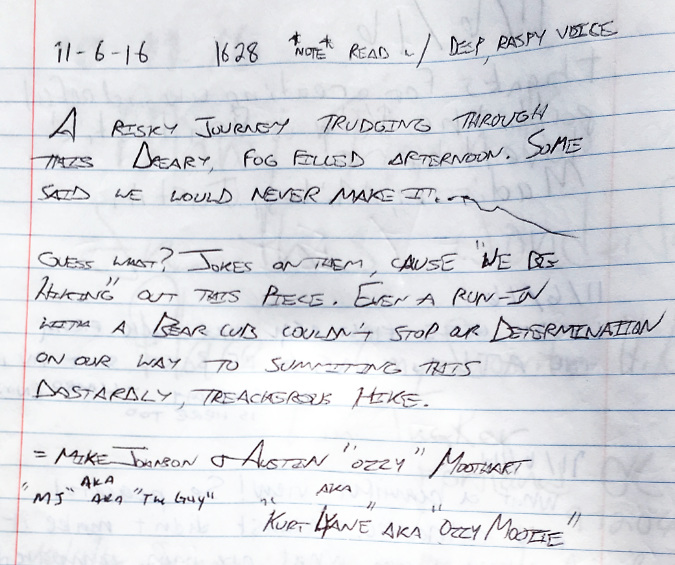 11-6-16 1628 *NOTE* READ w/ DEEP, RASPY VOICE
A RISKY JOURNEY TRUDGING THROUGH
THIS DREARY, FOG FILLED AFTERNOON. SOME
SAID WE WOULD NEVER MAKE IT...
GUESS WHAT? JOKES ON THEM, CAUSE "WE BIG
HIKING" OUT THIS PIECE. EVEN A RUN-IN
WITH A BEAR CUB COULDN'T STOP OUR DETERMINATION
ON OUR WAY TO SUMMITING THIS
DASTARDLY, TREACHEROUS HIKE.
= MIKE JOHNSON & AUSTIN "OZZY" MOOTHART
"MJ" AKA AKA "THE GUY" AKA
"KURT LYANE" AKA "OZZY MOOTIE"